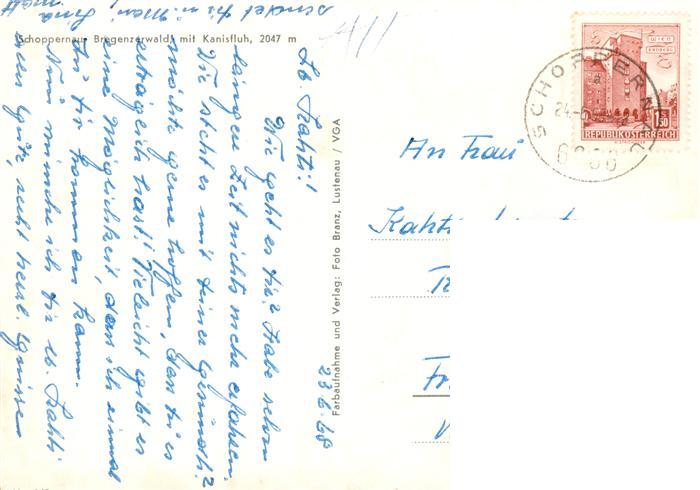 (Schoppernau Bregenzerwald) mit Kanisfluh, 2047 m
Lb. Kathi!
Wie geht es dir? Habe schon
längere Zeit nichts mehr erfahren.
Wie steht es mit deiner Gesundh.?
Möchte gerne hoffen, das du es
erträglich hast! Vieleicht gibt es
eine Möglichkeit, das ich einmal
zu dir kommen kann.
Nun wünsche ich dir lb. Kathi
alles Gute, seid herzl. Grüsse
sendet dir
23.6.68
Farbaufnahme und Verlag: Foto Branz, Lustenau / VGA
WIEN
ERDBERG
1.50
REPUBLIK ÖSTERREICH
SCHOPPERNAU
24.-6
a
An Frau
Kath
Fr